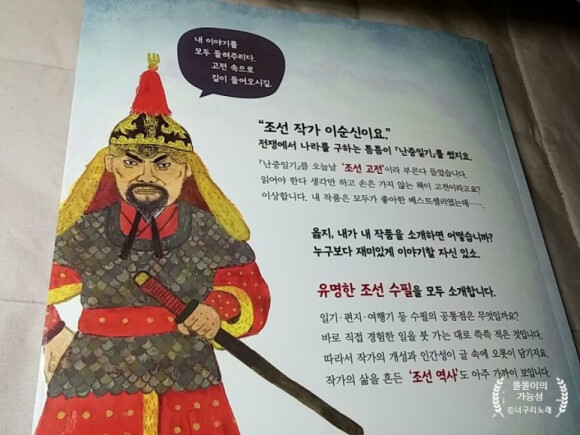 내 이야기를
모두 들려주리다.
고전 속으로
길이 들어오시길.
“조선 작가 이순신이요.”
전쟁에서 나라를 구하는 틈틈이 『난중일기』를 썼지요.
『난중일기』를 오늘날 ‘조선 고전’이라 부른다 들었습니다.
읽어야 한다 생각만 하고 손은 가지 않는 책이 고전이라고요?
이상합니다. 내 작품은 모두가 좋아한 베스트셀러였는데…….
옳지, 내가 내 작품을 소개하면 어떻습니까?
누구보다 재미있게 이야기할 자신 있소.
유명한 조선 수필을 모두 소개합니다.
일기·편지·여행기 등 수필의 공통점은 무엇일까요?
바로 직접 경험한 일을 붓 가는 대로 쓱쓱 적은 것입니다.
따라서 작가의 개성과 인간성이 글 속에 오롯이 담기지요.
작가의 삶을 흔든 ‘조선 역사’도 아주 가까이 보입니다.
똘똘이의
가능성
©너구리노래